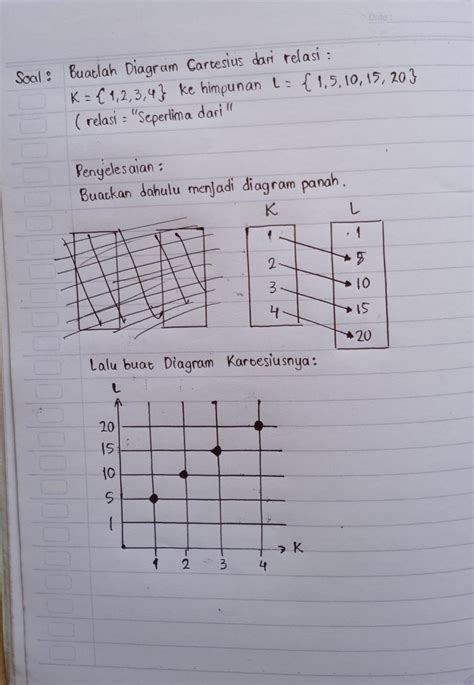 Date:
Soal: Buatlah Diagram Cartesius dari relasi:
K = {1,2,3,4} ke himpunan L = {1,5,10,15,20}
(relasi = "Seperlima dari"
Penyelesaian:
Buatkan dahulu menjadi diagram panah.
K L
1 1
2 5
3 10
4 15
20
Lalu buat Diagram Kartesiusnya:
L
20
15
10
5
1
K
1 2 3 4